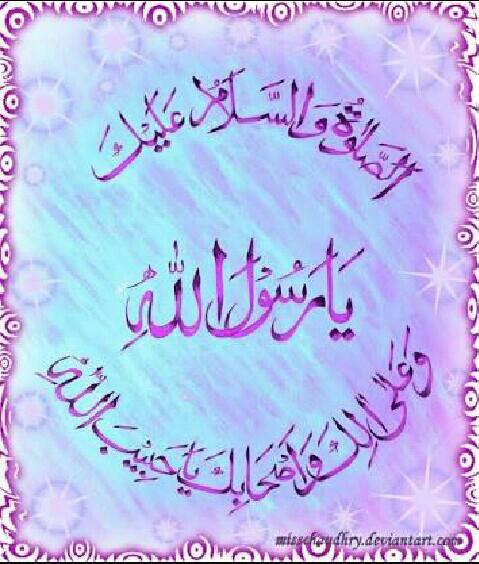 الصَّلٰوةُ وَالسَّلَامُ عَلَيْكَ
يَا رَسُوْلَ اللهِ
وَعَلٰى اٰلِكَ وَاَصْحَابِكَ يَا حَبِيْبَ اللهِ
misschaudhry.deviantart.com